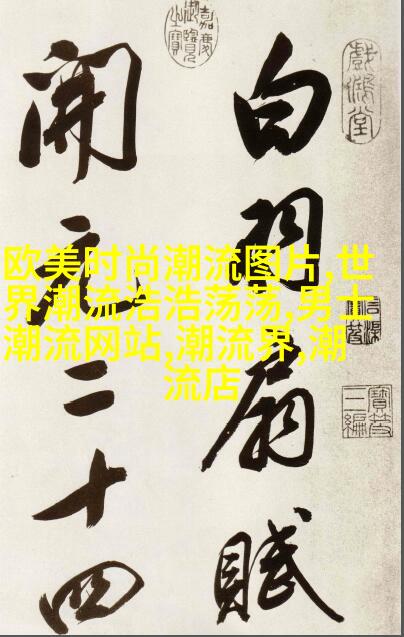 白羽扇賦
開元二十四
欧美时尚潮流图片,世
界潮流浩浩荡荡,男士
潮流网站,潮流界,潮
流店
戲鴻堂
嘉慶御覽之寶
寶笈三編